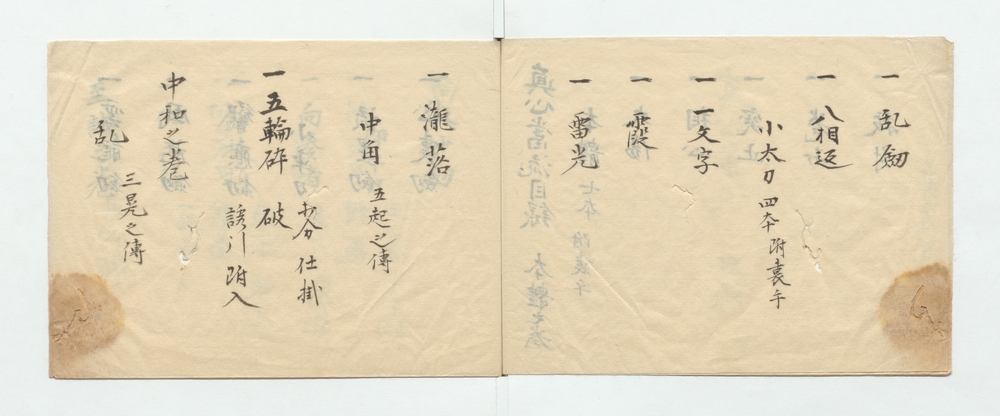 一 乱劔
一 八相返
小太刀 四本 附裏千
一 一文字
一 霞
一 雷光
一 瀧落
中角 五起之傳
一 五輪砕 破 あ分 仕掛
誘引 附入
中和之巻
乱 三晃之傳